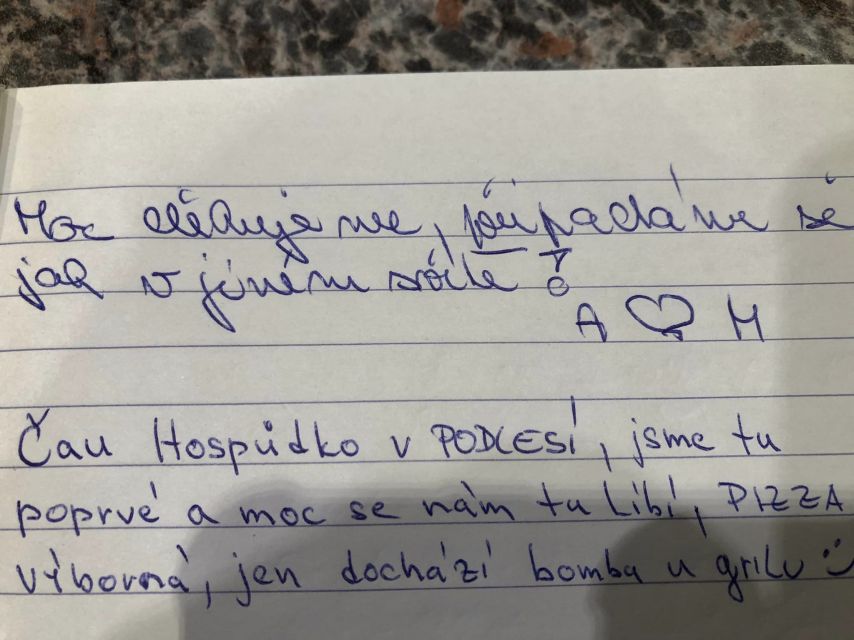 Moc děkujeme, připadáme se
jak v jiném světe!
A ♡ M
Čau Hospůdko v PODLESÍ, jsme tu
poprvé a moc se nám tu líbí, PIZZA
výborná, jen dochází bomba u grilu :)